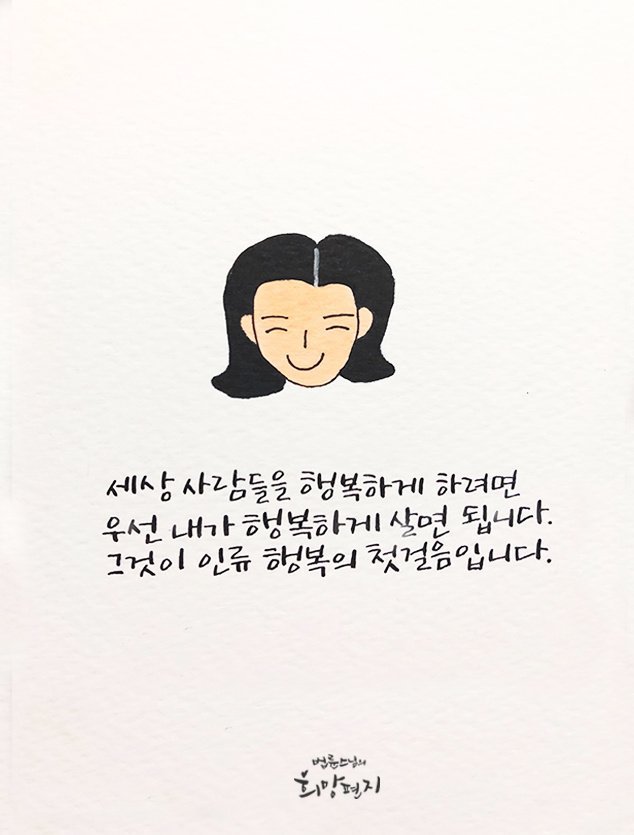 세상 사람들을 행복하게 하려면
우선 내가 행복하게 살면 됩니다.
그것이 인류 행복의 첫걸음입니다.
법륜스님의
희망편지